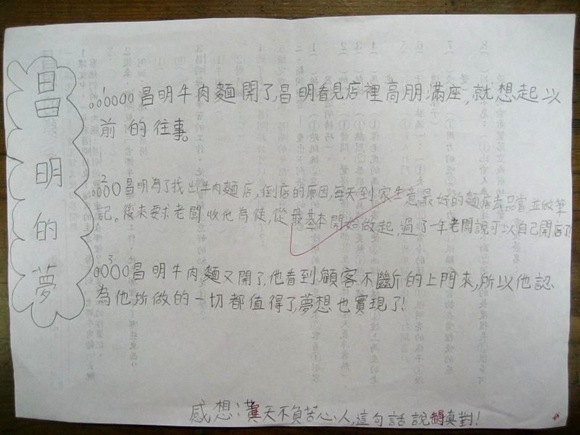 昌明的夢
1
昌明牛肉麵開了,昌明看見店裡高朋滿座,就想起以
前的往事。
2
昌明為了找出牛肉麵店,倒店的原因,每天到生意最好的麵店去品嘗並做筆
記。後來要求老闆收他為徒,從最基本開始做起,過了一年老闆說可以自己開店了
3
昌明牛肉麵又開了,他看到顧客不斷的上門來,所以他認
為他所做的一切都值得了,夢想也實現了!
感想:天不負苦心人,這句話說真對!